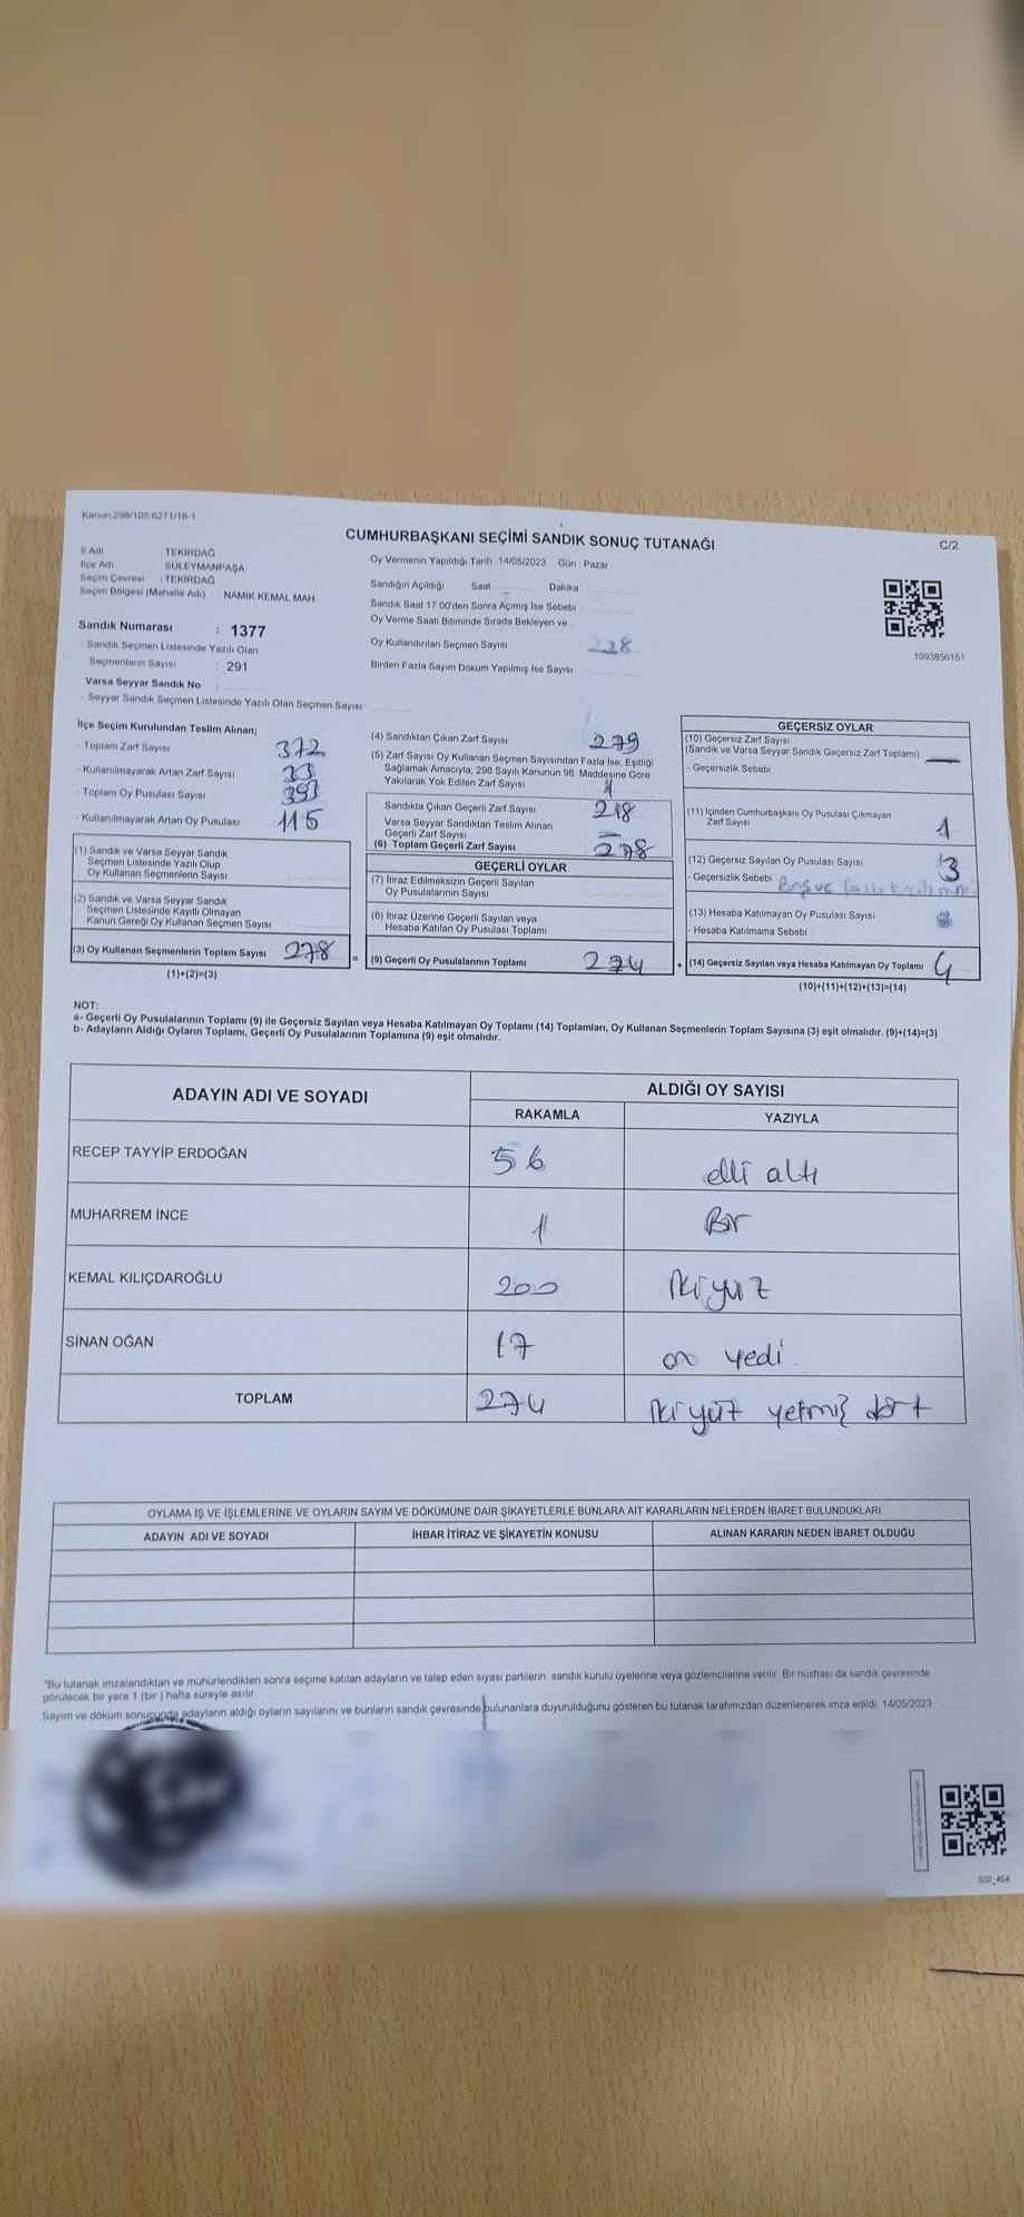 Kanun:298/105:6271/18-1
CUMHURBAŞKANI SEÇİMİ SANDIK SONUÇ TUTANAĞI
C/2
İl Adı TEKİRDAĞ
İlçe Adı SÜLEYMANPAŞA
Seçim Çevresi : TEKİRDAĞ
Seçim Bölgesi (Mahalle Adı) NAMIK KEMAL MAH.
Oy Vermenin Yapıldığı Tarih 14/05/2023 Gün : Pazar
Sandığın Açıldığı Saat Dakika
Sandık Saat 17.00'den Sonra Açılmış İse Sebebi
Oy Verme Saati Bitiminde Sırada Bekleyen ve
Oy Kullandırılan Seçmen Sayısı
Birden Fazla Sayım Döküm Yapılmış İse Sayısı
1093856161
Sandık Numarası : 1377
- Sandık Seçmen Listesinde Yazılı Olan
Seçmenlerin Sayısı : 291
Varsa Seyyar Sandık No :
- Seyyar Sandık Seçmen Listesinde Yazılı Olan Seçmen Sayısı
İlçe Seçim Kurulundan Teslim Alınan;
- Toplam Zarf Sayısı 372
- Kullanılmayarak Artan Zarf Sayısı
- Toplam Oy Pusulası Sayısı 393
- Kullanılmayarak Artan Oy Pusulası 115
(1) Sandık ve Varsa Seyyar Sandık
Seçmen Listesinde Yazılı Olup
Oy Kullanan Seçmenlerin Sayısı
(2) Sandık ve Varsa Seyyar Sandık
Seçmen Listesinde Kayıtlı Olmayan
Kanun Gereği Oy Kullanan Seçmen Sayısı
(3) Oy Kullanan Seçmenlerin Toplam Sayısı 278
(1)+(2)=(3)
(4) Sandıktan Çıkan Zarf Sayısı 279
(5) Zarf Sayısı Oy Kullanan Seçmen Sayısından Fazla İse, Eşitliği
Sağlamak Amacıyla, 298 Sayılı Kanunun 98. Maddesine Göre
Yakılarak Yok Edilen Zarf Sayısı 1
Sandıkta Çıkan Geçerli Zarf Sayısı 278
Varsa Seyyar Sandıktan Teslim Alınan
Geçerli Zarf Sayısı
(6) Toplam Geçerli Zarf Sayısı 278
GEÇERLİ OYLAR
(7) İtiraz Edilmeksizin Geçerli Sayılan
Oy Pusulalarının Sayısı
(8) İtiraz Üzerine Geçerli Sayılan veya
Hesaba Katılan Oy Pusulası Toplamı
= (9) Geçerli Oy Pusulalarının Toplamı 274
GEÇERSİZ OYLAR
(10) Geçersiz Zarf Sayısı
(Sandık ve Varsa Seyyar Sandık Geçersiz Zarf Toplamı)
- Geçersizlik Sebebi
(11) İçinden Cumhurbaşkanı Oy Pusulası Çıkmayan
Zarf Sayısı 1
(12) Geçersiz Sayılan Oy Pusulası Sayısı 3
- Geçersizlik Sebebi Boş ve
(13) Hesaba Katılmayan Oy Pusulası Sayısı
- Hesaba Katılmama Sebebi
+ (14) Geçersiz Sayılan veya Hesaba Katılmayan Oy Toplamı 4
(10)+(11)+(12)+(13)=(14)
NOT:
a- Geçerli Oy Pusulalarının Toplamı (9) ile Geçersiz Sayılan veya Hesaba Katılmayan Oy Toplamı (14) Toplamları, Oy Kullanan Seçmenlerin Toplam Sayısına (3) eşit olmalıdır. (9)+(14)=(3)
b- Adayların Aldığı Oyların Toplamı, Geçerli Oy Pusulalarının Toplamına (9) eşit olmalıdır.
ADAYIN ADI VE SOYADI ALDIĞI OY SAYISI
RAKAMLA YAZIYLA
RECEP TAYYİP ERDOĞAN 56 elli altı
MUHARREM İNCE 1 Bir
KEMAL KILIÇDAROĞLU 200 İkiyüz
SİNAN OĞAN 17 on yedi
TOPLAM 274 İkiyüz yetmiş dört
OYLAMA İŞ VE İŞLEMLERİNE VE OYLARIN SAYIM VE DÖKÜMÜNE DAİR ŞİKAYETLERLE BUNLARA AİT KARARLARIN NELERDEN İBARET BULUNDUKLARI
ADAYIN ADI VE SOYADI İHBAR İTİRAZ VE ŞİKAYETİN KONUSU ALINAN KARARIN NEDEN İBARET OLDUĞU
*Bu tutanak imzalandıktan ve mühürlendikten sonra seçime katılan adayların ve talep eden siyasi partilerin sandık kurulu üyelerine veya gözlemcilerine verilir. Bir nüshası da sandık çevresinde
görülecek bir yere 1 (bir) hafta süreyle asılır.
Sayım ve döküm sonucunda adayların aldığı oyların sayılarını ve bunların sandık çevresinde bulunanlara duyurulduğunu gösteren bu tutanak tarafımızdan düzenlenerek imza edildi. 14/05/2023